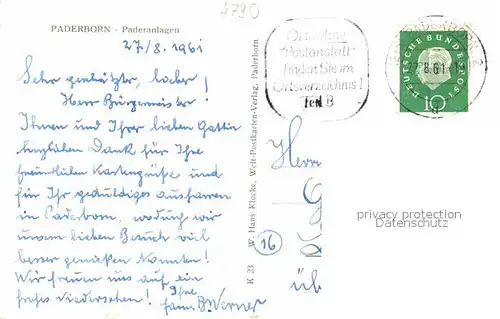 4790
PADERBORN - Paderanlagen
27/8. 1961
Sehr geehrter, lieber!
Herr Bürgermeister!
Ihnen und Ihrer lieben Gattin
herzlichen Dank für Ihre
freundlichen Kartengrüße und
für Ihr geduldiges ausfahren
in Paderborn, wodurch wir
unsern lieben Besuch viel
besser genießen konnten!
Wir freuen uns auf ein
frohes Wiedersehen! Ihre
fam. B. Werner
K 23 W. Hans Klocke, Welt-Postkarten-Verlag, Paderborn
Orte ohne
"Postanstalt"
finden Sie im
Ortsverzeichnis I
Teil B
PADERBORN 2
27.8.61
DEUTSCHE BUNDESPOST
10
Herrn
16
üb
privacy protection
Datenschutz